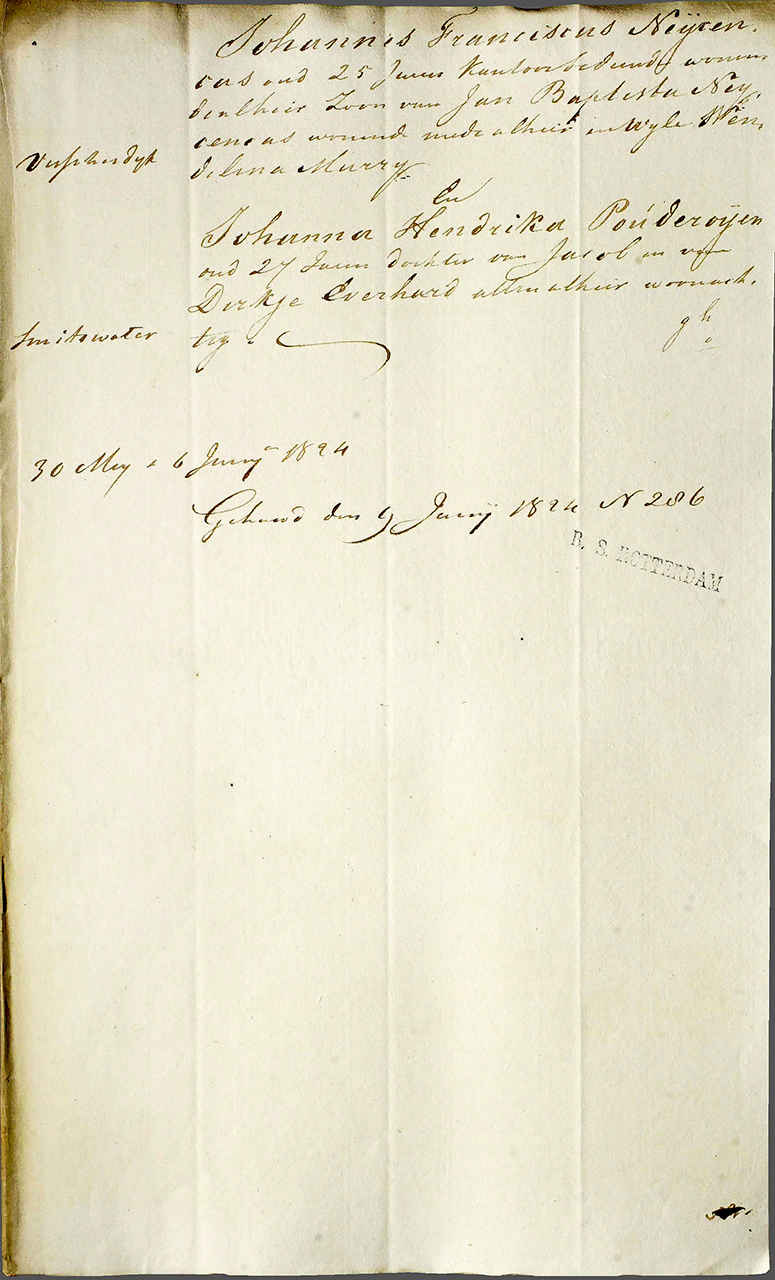 Johannes Franciscus Neÿcen,
cas oud 25 Jaren Kantoorbediende wonen
de alhier Zoon van Jan Baptista Neÿ,
cencas wonende mede alhier en wyle Wen,
delina Murry
En
Johanna Hendrika Poúderoÿen
oud 27 Jaren dochter van Jacob en van
Dirkje Everhard allen alhier woonach,
tig
Visschersdyk
Smitswater
30 Mey & 6 Junÿ 1824
Gehuwd den 9 Junÿ 1824 N 286
B. S. ROTTERDAM